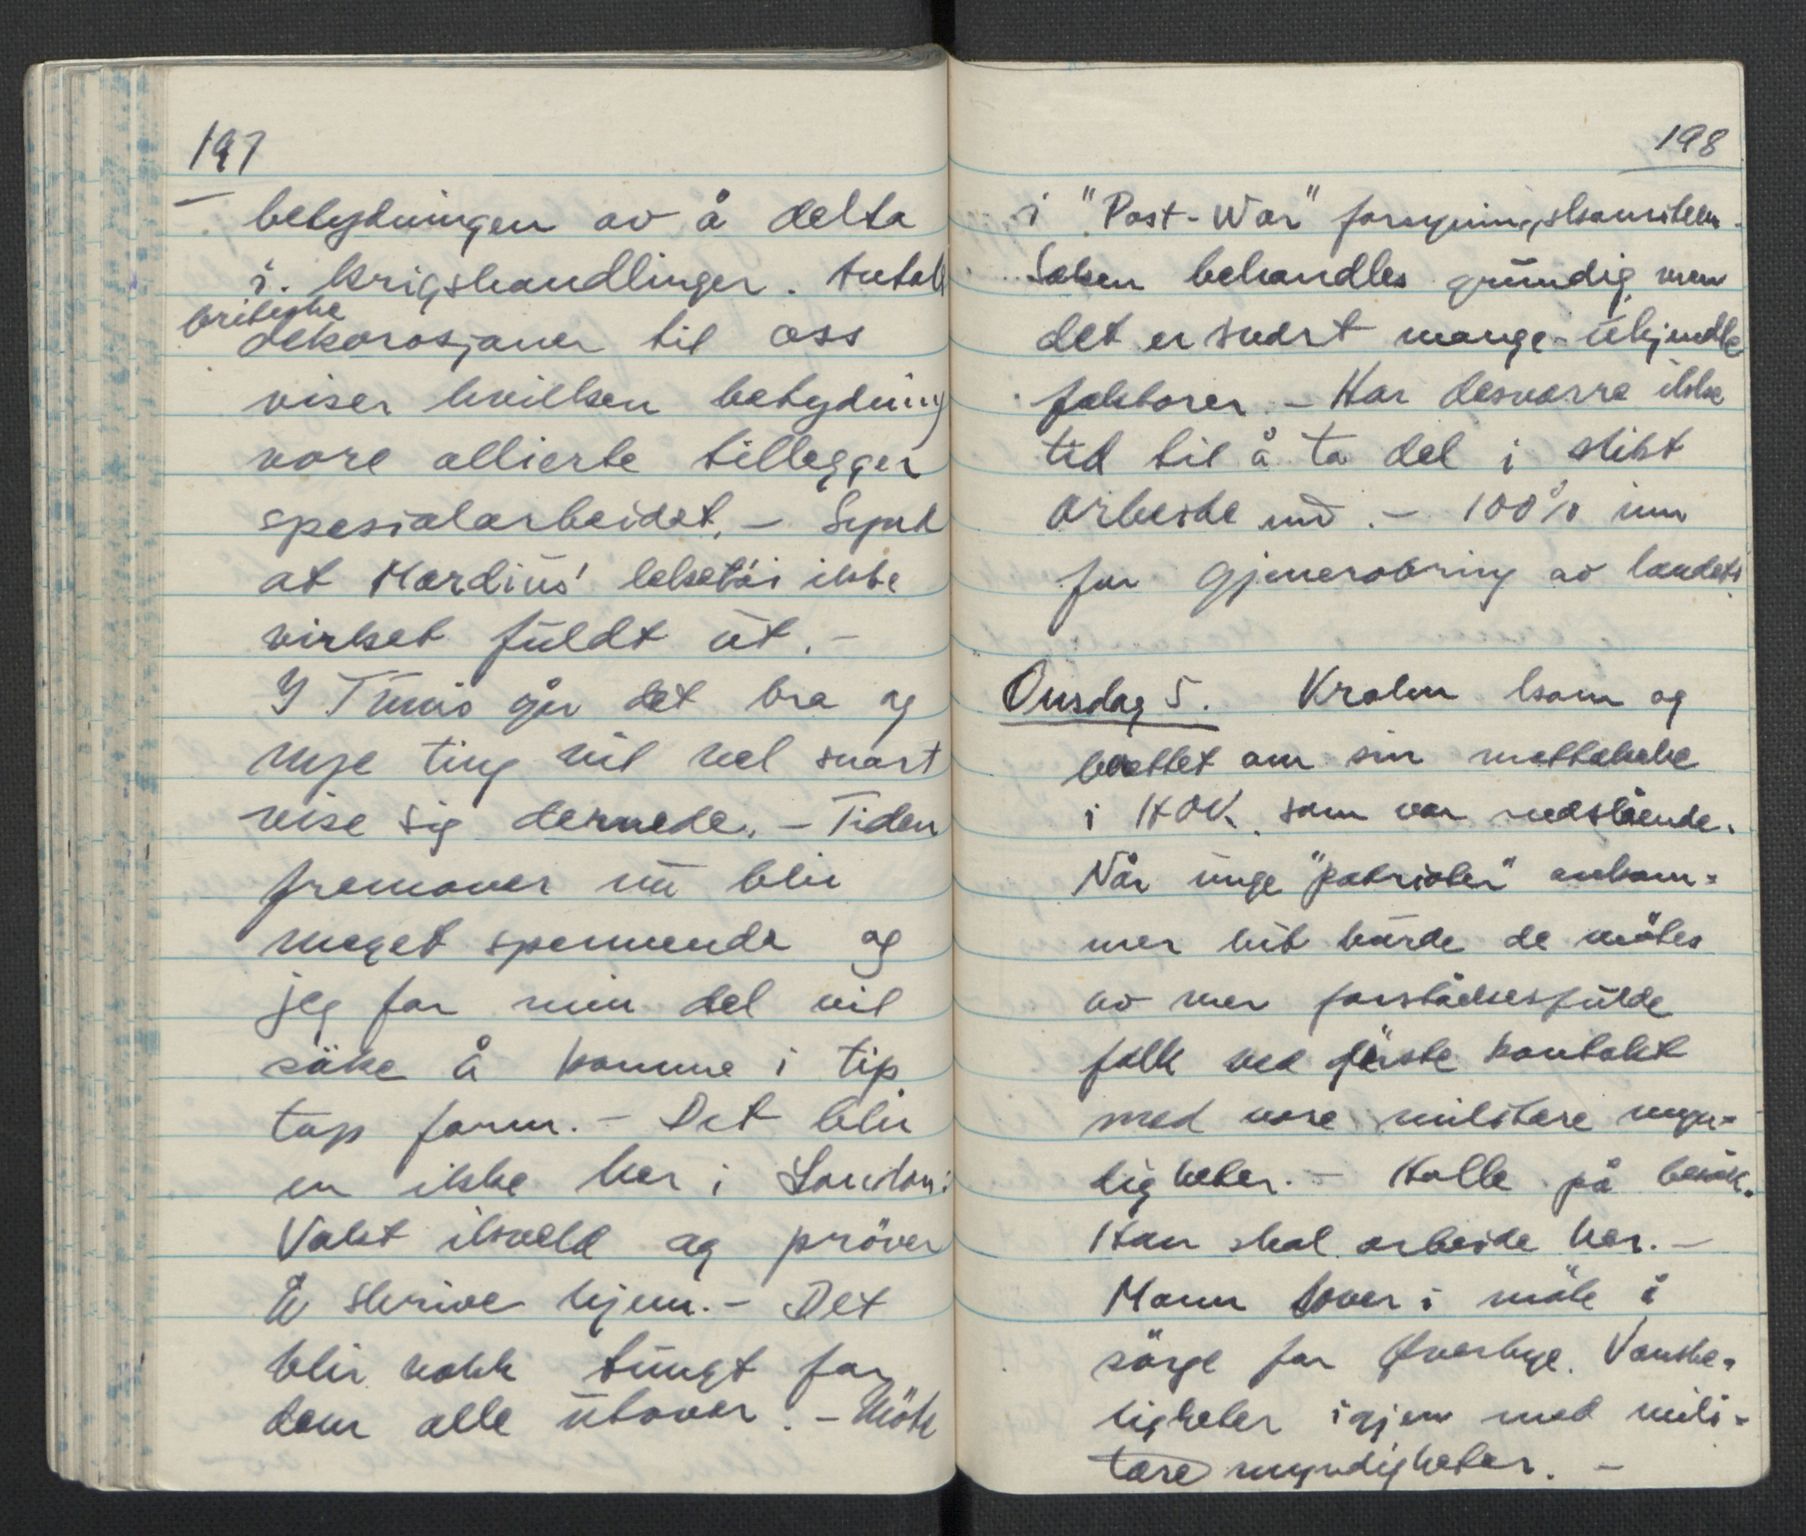 197
betydningen av å delta
i. krigshandlinger. Antall
britiske
dekorasjoner til oss
viser hvilken betydning
vore allierte tillegger
spesialarbeidet. – Synd
at Mardius' leketöi ikke
virket fuldt ut. –
I Tunis går det bra og
mye ting vil vel snart
vise sig dernede. – Tiden
fremover nu blir
meget spennende og
jeg for min del vil
söke å komme i tip
top form. – Det blir
en ikke her i London.
Vakt ikveld og pröver
å skrive hjem. – Det
blir nokk tungt for
dem alle utover. – Möte
198
i "Post-War" forsyningskomiteen.
Saken behandles grundig men
det er svært mange ukjendte
faktorer – Har desværre ikke
tid til å ta del i slikt
arbeide nu. – 100% inn
for gjenerobring av landet.
Onsdag 5. Krohn kom og
berettet om sin mottakelse
i HOK. som var nedslående.
Når unge "patrioter" ankom-
mer hit burde de mötes
av mer forståelsesfulde
folk ved förste kontakt
med vore militære myn-
digheter. – Kolle på besök.
Han skal arbeide her. –
Mann lover i möte å
sörge for Överbye. Vanske-
ligheter igjen med mili-
tære myndigheter. –